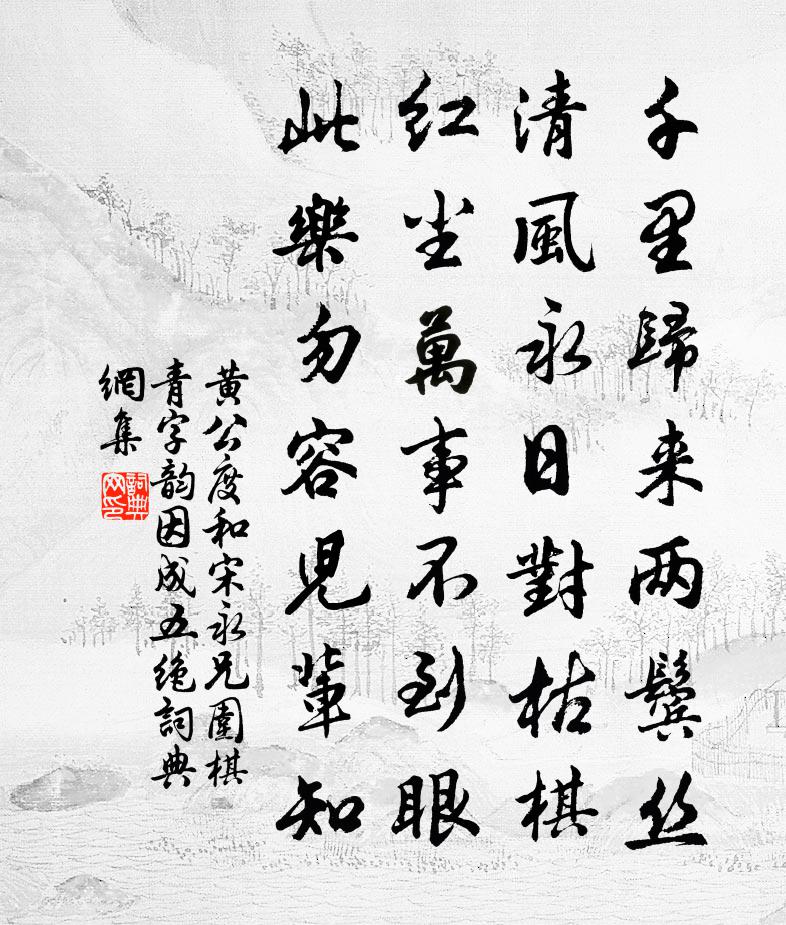 千里歸来两鬓丝
清風永日對枯棋
紅尘萬事不到眼
此樂勿容児輩知
黄公度和宋永兄圍棋
青字韵因成五绝詞典
網集
詞典
网印